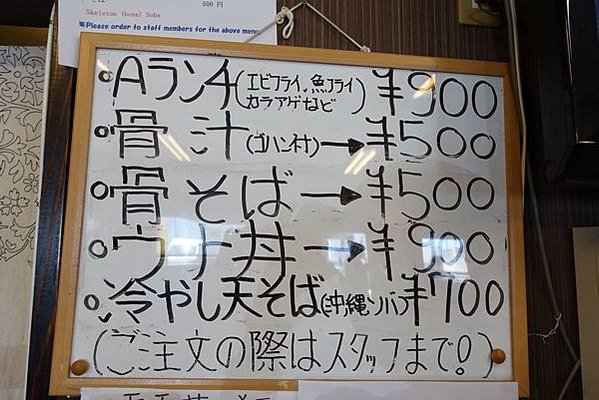 500円
Skeleton (bone) Soba
※Please order to staff members for the above menu
○Aランチ(エビフライ、魚フライ カラアゲなど) ¥900
○骨汁(ゴハン付)→¥500
○骨そば→¥500
○ウナ丼→¥900
○冷やし天そば(沖縄ソバ)¥700
(ご注文の際はスタッフまで!)